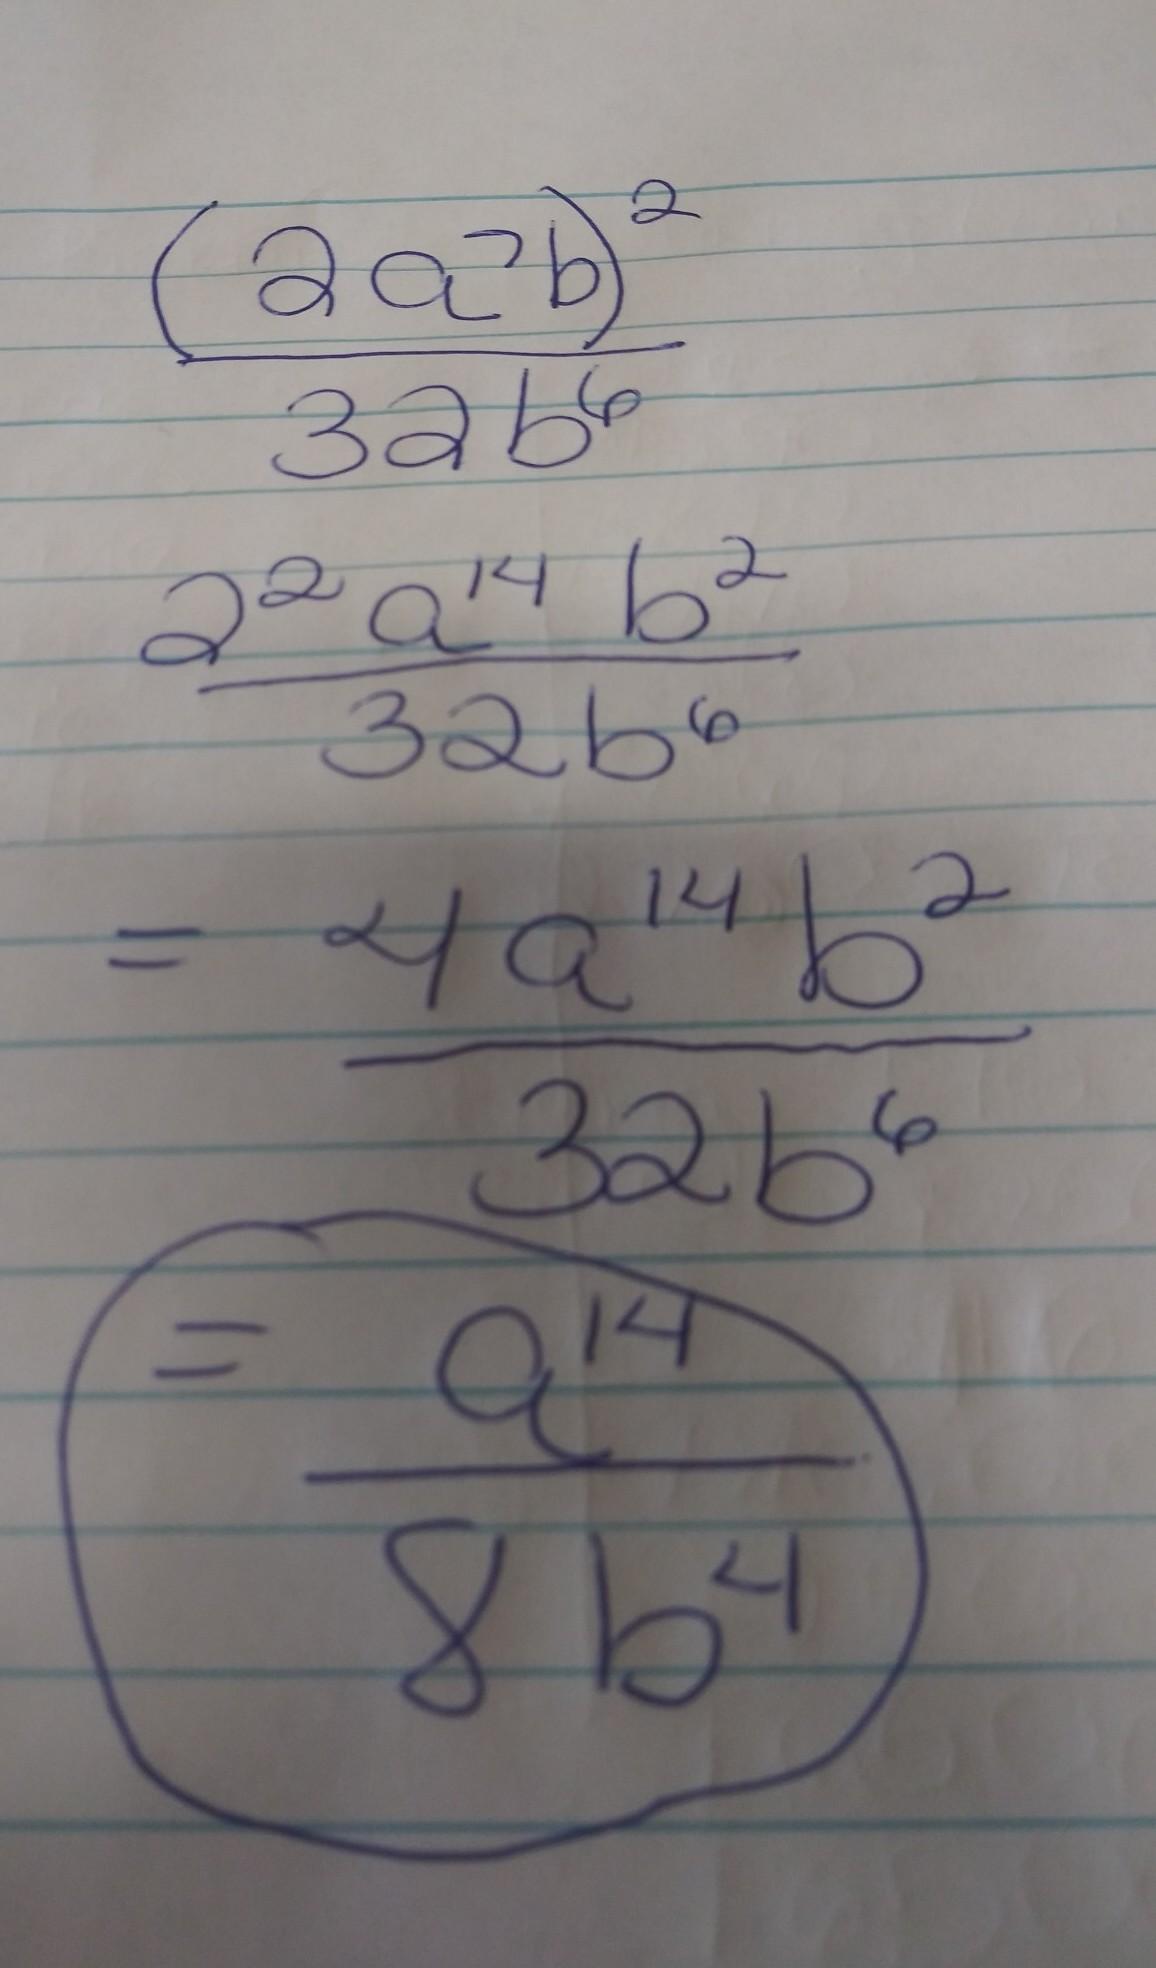 (2a⁷b)²
32b⁶
2²a¹⁴b²
32b⁶
= 4a¹⁴b²
32b⁶
= a¹⁴
8b⁴